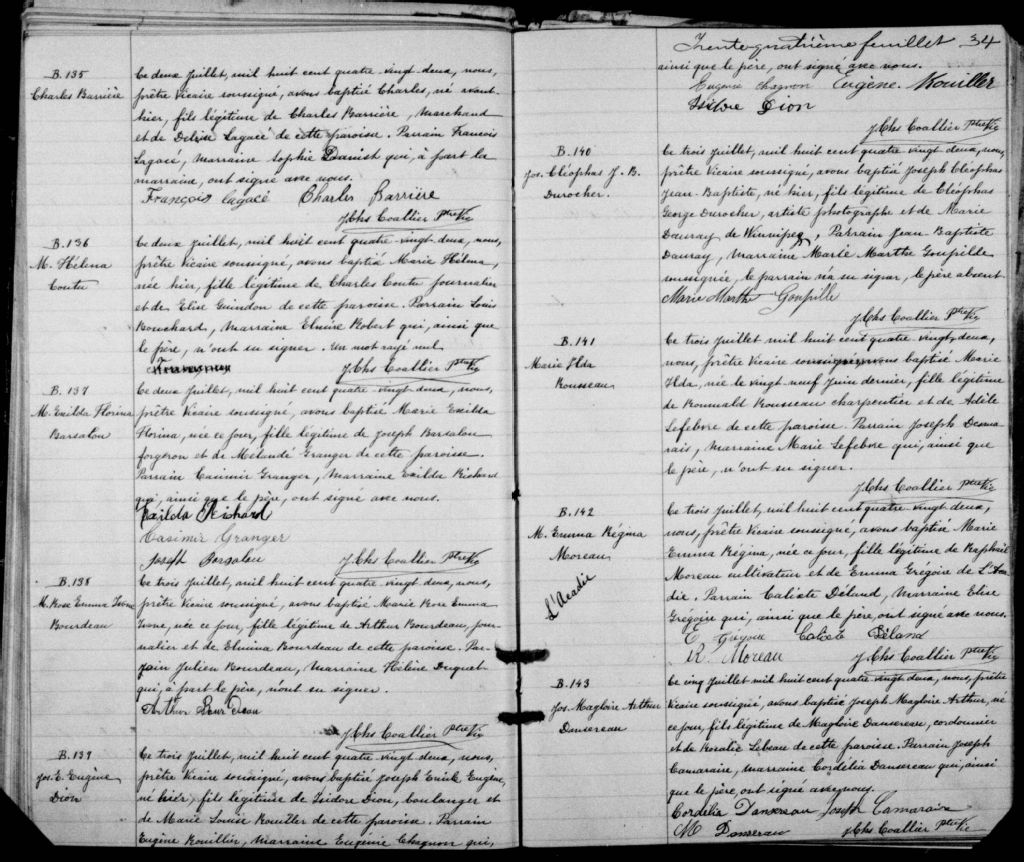 B. 135
Charles Barrière
Ce deux Juillet, mil huit cent quatre vingt-deux, nous,
prêtre Vicaire soussigné, avons baptisé Charles, né avant
hier, fils légitime de Charles Barrière, Marchand
et de Delise Lagacé de cette paroisse. Parrain Francois
Lagacé, marraine Sophie Danist qui, à part la
marraine, ont signé avec nous.
François Lagacé Charles Barrière
J. Chs Coallier Ptre Vic
B. 136
M. Héléna
Coutu
Ce deux Juillet, mil huit cent quatre vingt deux, nous,
prêtre Vicaire soussigné, avons baptisé Marie Héléna,
née hier, fille légitime de Charles Coutu journalier
et de Elise Guindon de cette paroisse. Parrain Louis
Bouchard, Marraine Elmire Robert qui, ainsi que
le père, n'ont su signer. Un mot rayé nul
J. Chs Coallier Ptre Vic
B. 137
M. Exilda Florina
Barsalou
Ce deux Juillet, mil huit cent quatre vingt deux, nous,
prêtre Vicaire soussigné, avons baptisé Marie Exilda
Florina, née ce jour, fille légitime de Joseph Barsalou
forgeron et de Mélendé Granger de cette paroisse.
Parrain Casimir Granger, Marraine Exilda Richard
qui, ainsi que le père, ont signé avec nous.
Exilda Richard
Casimir Granger
Joseph Barsalou J. Chs Coallier Ptre Vic
B. 138
M. Rose Emma Ivone
Bourdeau
Ce trois Juillet, mil huit cent quatre vingt deux, nous,
prêtre Vicaire soussigné, avons baptisé Marie Rose Emma
Ivone, née ce jour, fille légitime de Arthur Bourdeau, jour-
nalier et de Elmina Bourdeau de cette paroisse. Par-
rain Julien Bourdeau, marraine Hélène Duquet
qui, à part le père, n'ont su signer.
Arthur Bourdeau
J. Chs Coallier Ptre Vic
B. 139
Jos. E. Eugène
Dion
Ce trois Juillet, mil huit cent quatre vingt deux, nous,
prêtre Vicaire soussigné, avons baptisé Joseph Emile Eugène,
né hier, fils légitime de Isidore Dion, boulanger et
de Marie Louise Rouiller de cette paroisse. Parrain
Eugène Rouillier, Marraine Eugénie Chagnon qui,
Trente quatrième feuillet 34
ainsi que le père, ont signé avec nous.
Eugénie Chagnon Eugène Rouiller
Isidore Dion
J. Chs Coallier Ptre Vic
B. 140
Jos. Cléophas J. B.
Durocher.
Ce trois Juillet, mil huit cent quatre vingt deux, nous,
prêtre Vicaire soussigné, avons baptisé Joseph Cléophas
Jean-Baptiste, né hier, fils légitime de Cléophas
George Durocher, artiste photographe et de Marie
Dauray de Winnipeg, Parrain Jean-Baptiste
Dauray, marraine Marie Marthe Goupille
soussignée, le parrain n'a su signer, le père absent
Marie Marthe Goupille
J. Chs Coallier Ptre Vic
B. 141
Marie Ida
Rousseau
Ce trois Juillet mil huit cent quatre vingt, deux,
nous, prêtre Vicaire soussigné avons baptisé Marie
Ida, née le vingt neuf Juin dernier, fille légitime
de Romuald Rousseau charpentier et de Adèle
Lefebvre de cette paroisse. Parrain Joseph Desma
rais, Marraine Marie Lefebvre qui, ainsi que
le père, n'ont su signer.
J. Chs Coallier Ptre Vic
B. 142
M. Emma Régina
Moreau
L'Acadie
Ce trois Juillet, mil huit cent quatre vingt deux,
nous, prêtre Vicaire soussigné, avons baptisé Marie
Emma Régina, née ce jour, fille légitime de Raphaël
Moreau cultivateur et de Emma Grégoire de L'Aca
die. Parrain Calixte Déland, Marraine Elise
Grégoire qui, ainsi que le père, ont signé avec nous.
Calixte Déland
R. Moreau J. Chs Coallier Ptre Vic
B. 143
Jos. Magloire Arthur
Dansereau
Ce cinq Juillet mil huit cent quatre vingt deux, nous, prêtre
Vicaire soussigné, avons baptisé Joseph Magloire Arthur, né
ce jour, fils légitime de Magloire Dansereau, cordonnier
et de Rosalie Lebeau de cette paroisse. Parrain Joseph
Camaraire, marraine Cordélia Dansereau qui, ainsi
que le père, ont signé avec nous.
Cordélia Dansereau Joseph Camaraire
M Dansereau J. Chs Coallier Ptre Vic